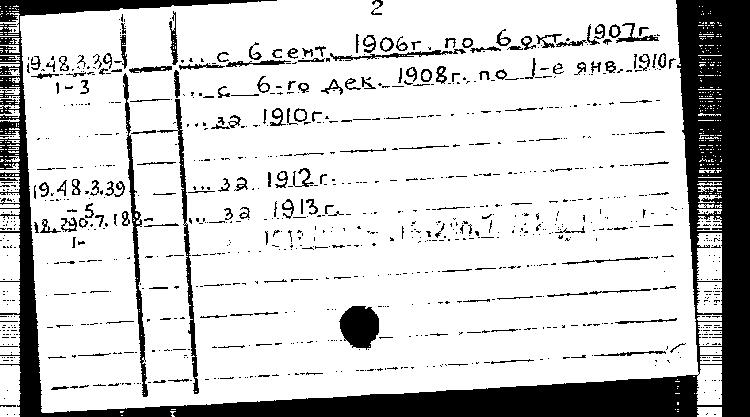 2
19.48.3.39- ... с 6 сент. 1906г. по 6 окт. 1907г.
1-3 ... с 6-го дек. 1908г. по 1-е янв. 1910г.
... за 1910г.
19.48.3.39 ... за 1912г.
-5 ... за 1913г.
18.290.7.188-
1-
18.290.7.188